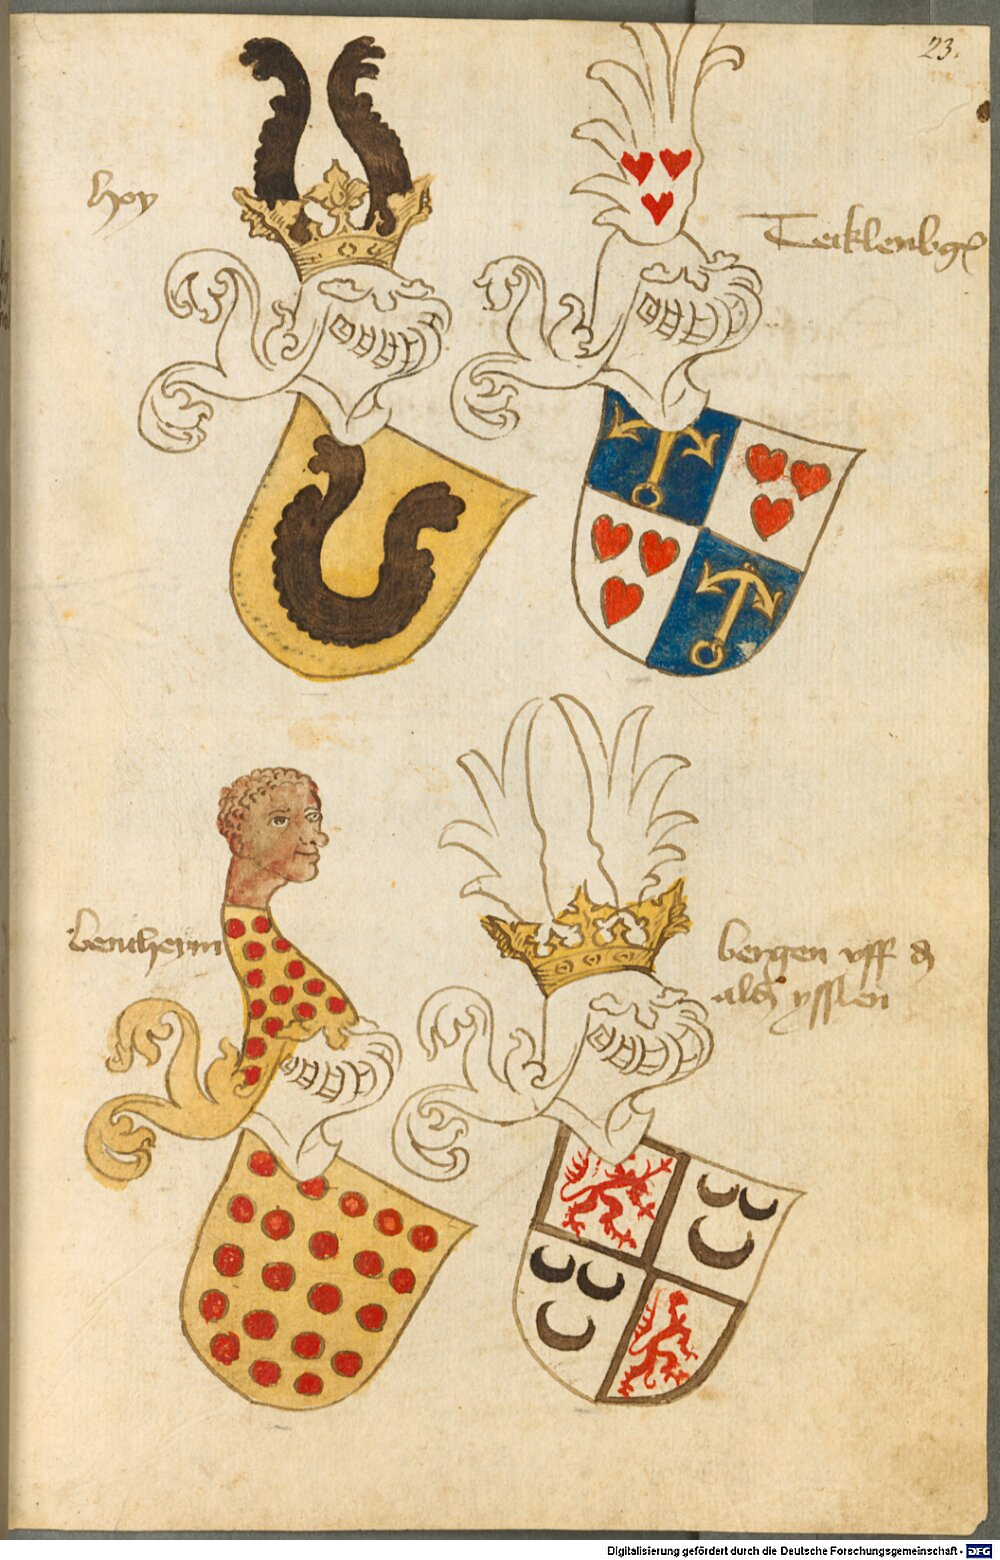 23.
hoy
Tecklenbg
bentheym
bergen vff d
ald ysslen
Digitalisierung gefördert durch die Deutsche Forschungsgemeinschaft - DFG